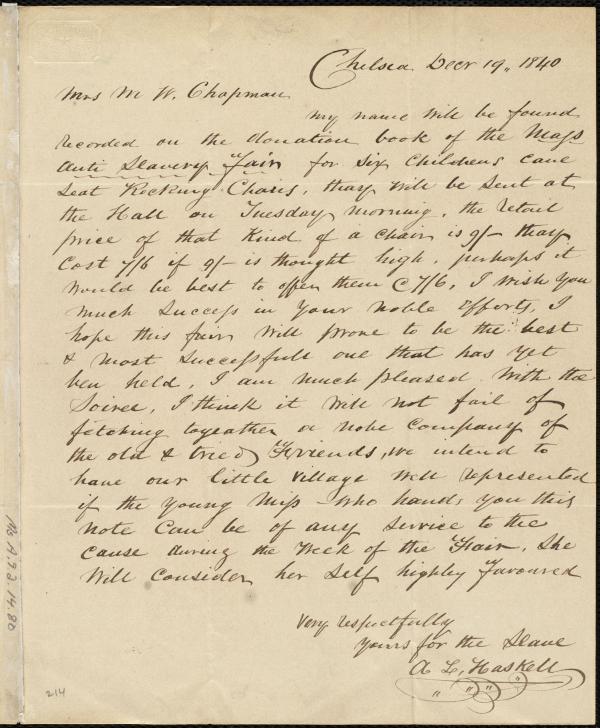 Chelsea Decr 19,, 1840
Mrs M W. Chapman
My name will be found
recorded on the donation book of the Mass
Anti Slavery Fair for six Childrens cane
Seat Rocking Chairs, thay will be sent at
the Hall on Tuesday morning, the retail
price of that kind of a chair is 9/- thay
Cost 7/6 if 9/- is thought high, perhaps it
would be best to offer them @ 7/6, I wish you
much success in your noble Efforts, I
hope this fair will prove to be the best
& most Successfull one that has yet
ben held, I am much pleased with the
Soiree, I think it will not fail of
fetching togeather a nobe Company of
the old & tried Friends, we intend to
have our little village well represented
if the young Miss who hands you this
note can be of any service to the
cause during the week of the Fair, She
will consider her self highly Favoured
Very respectfully
yours for the Slave
A L, Haskell
Ms A.9.2.14.80
214